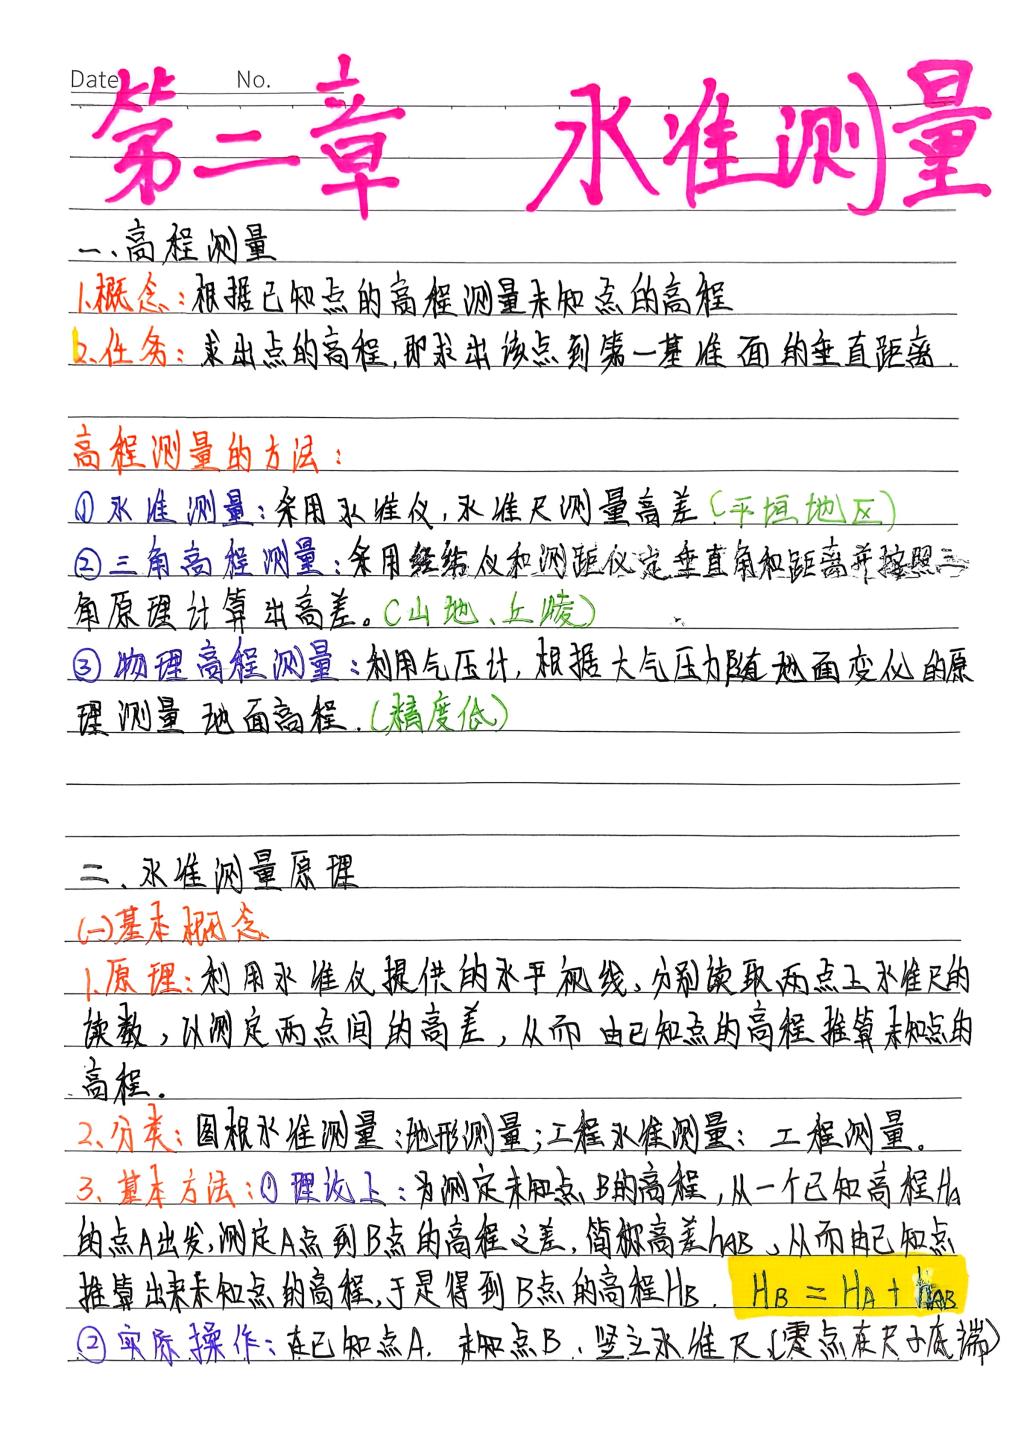 Date No.
第二章 水准测量
一、高程测量
1.概念：根据已知点的高程测量未知点的高程
2.任务：求出点的高程,即求出该点到第一基准面的垂直距离.
高程测量的方法：
①水准测量：采用水准仪,水准尺测量高差(平垣地区)
②三角高程测量：采用经纬仪和测距仪定垂直角和距离并按照三
角原理计算出高差。(山地、丘陵)
③物理高程测量：利用气压计,根据大气压力随地面变化的原
理测量地面高程.(精度低)
二、水准测量原理
(一)基本概念
1.原理：利用水准仪提供的水平视线,分别读取两点上水准尺的
读数,以测定两点间的高差,从而由已知点的高程推算未知点的
高程.
2、分类：图根水准测量：地形测量；工程水准测量：工程测量。
3、基本方法：①理论上：为测定未知点B的高程,从一个已知高程HA
的点A出发,测定A点到B点的高程之差,简称高差hAB,从而由已知点
推算出来未知点的高程,于是得到B点的高程HB. HB=HA+hAB
②实际操作：在已知点A.未知点B、竖立水准尺(零点在尺子底端)